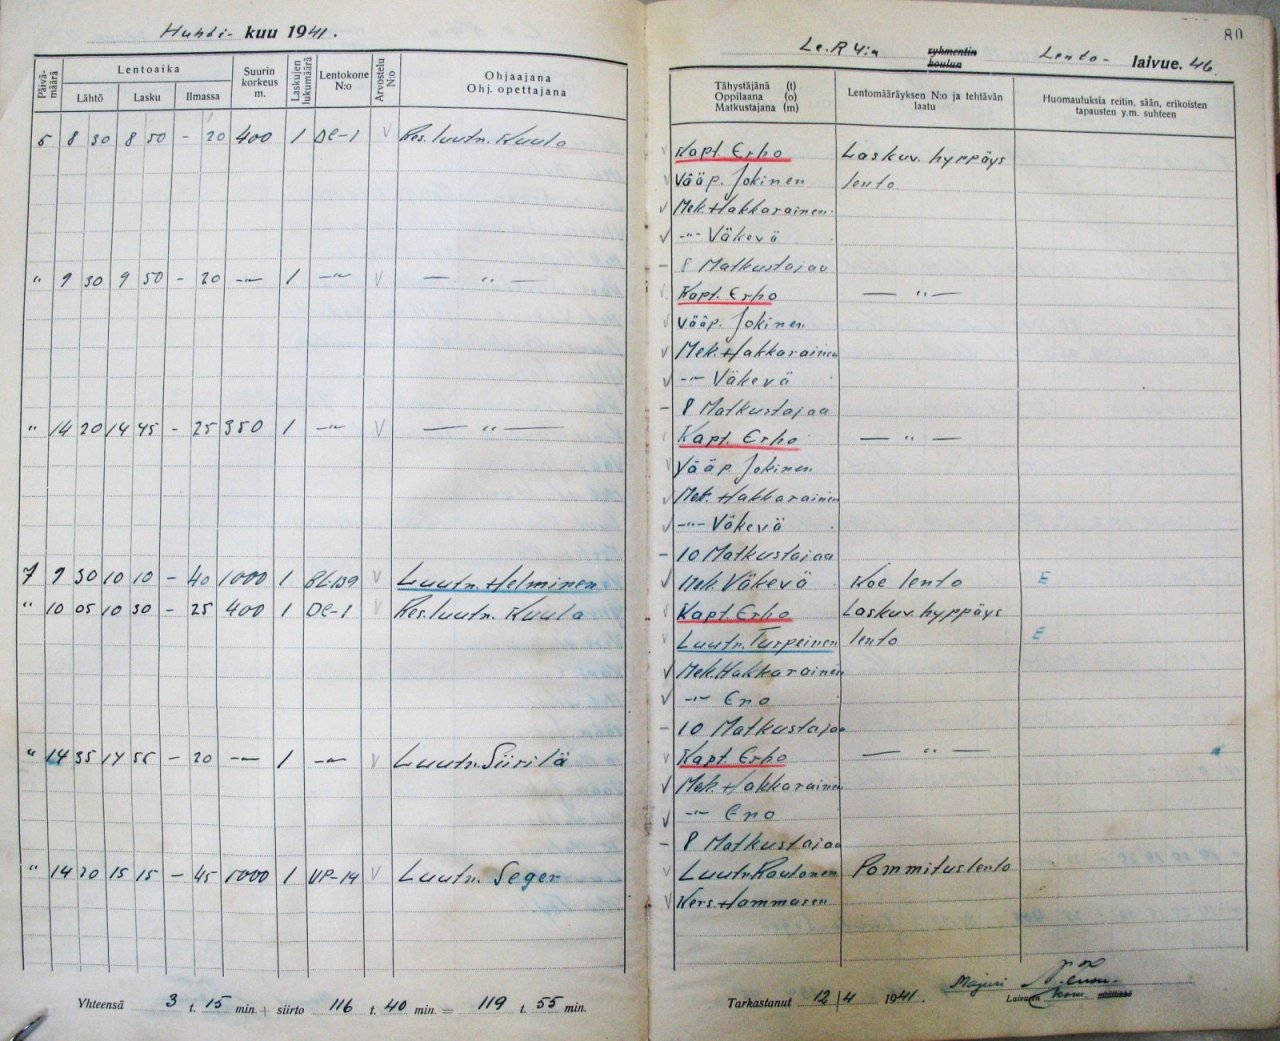 Huhti- kuu 1941.
Päivä-määrä
Lentoaika
Lähtö
Lasku
Ilmassa
Suurin korkeus m.
Laskujen lukumäärä
Lentokone N:o
Arvostelu N:o
Ohjaajana
Ohj. opettajana
5 8 30 8 50 - 20 400 1 DC-1 V Res.luutn. Kuula
" 9 30 9 50 - 20 -"- 1 -"- V — " —
" 14 20 14 45 - 25 350 1 -"- V — " —
7 9 30 10 10 - 40 1000 1 BL-139 V Luutn. Helminen
" 10 05 10 30 - 25 400 1 DC-1 V Res.luutn. Kuula
" 14 35 14 55 - 20 -"- 1 -"- V Luutn. Siirilä
" 14 30 15 15 - 45 1000 1 VP-14 V Luutn. Seger
Yhteensä 3 t. 15 min. + siirto 116 t. 40 min. = 119 t. 55 min.
80
Le.R 4:n
rykmentin
koulun
Lento- laivue. 46.
Tähystäjänä (t)
Oppilaana (o)
Matkustajana (m)
Lentomääräyksen N:o ja tehtävän laatu
Huomautuksia reitin, sään, erikoisten tapausten y.m. suhteen
V Kapt. Erho Laskuv. hyppäys
V Vääp. Jokinen lento
V Mek. Hakkarainen
V -"- Väkevä
- 8 Matkustajaa
V Kapt. Erho — " —
V Vääp. Jokinen
V Mek. Hakkarainen
V -"- Väkevä
- 8 Matkustajaa
V Kapt. Erho — " —
V Vääp. Jokinen
V Mek. Hakkarainen
V -"- Väkevä
- 10 Matkustajaa
V Mek. Väkevä Koe lento E
V Kapt. Erho Laskuv. hyppäys
V Luutn. Turpeinen lento E
V Mek. Hakkarainen
V -"- Eno
- 10 Matkustajaa
V Kapt. Erho — " —
V Mek. Hakkarainen
V -"- Eno
- 8 Matkustajaa
V Luutn Rautanen Pommituslento
V Kers. Hammasen
Tarkastanut 12/4 1941. Majuri
Laivueen kom.